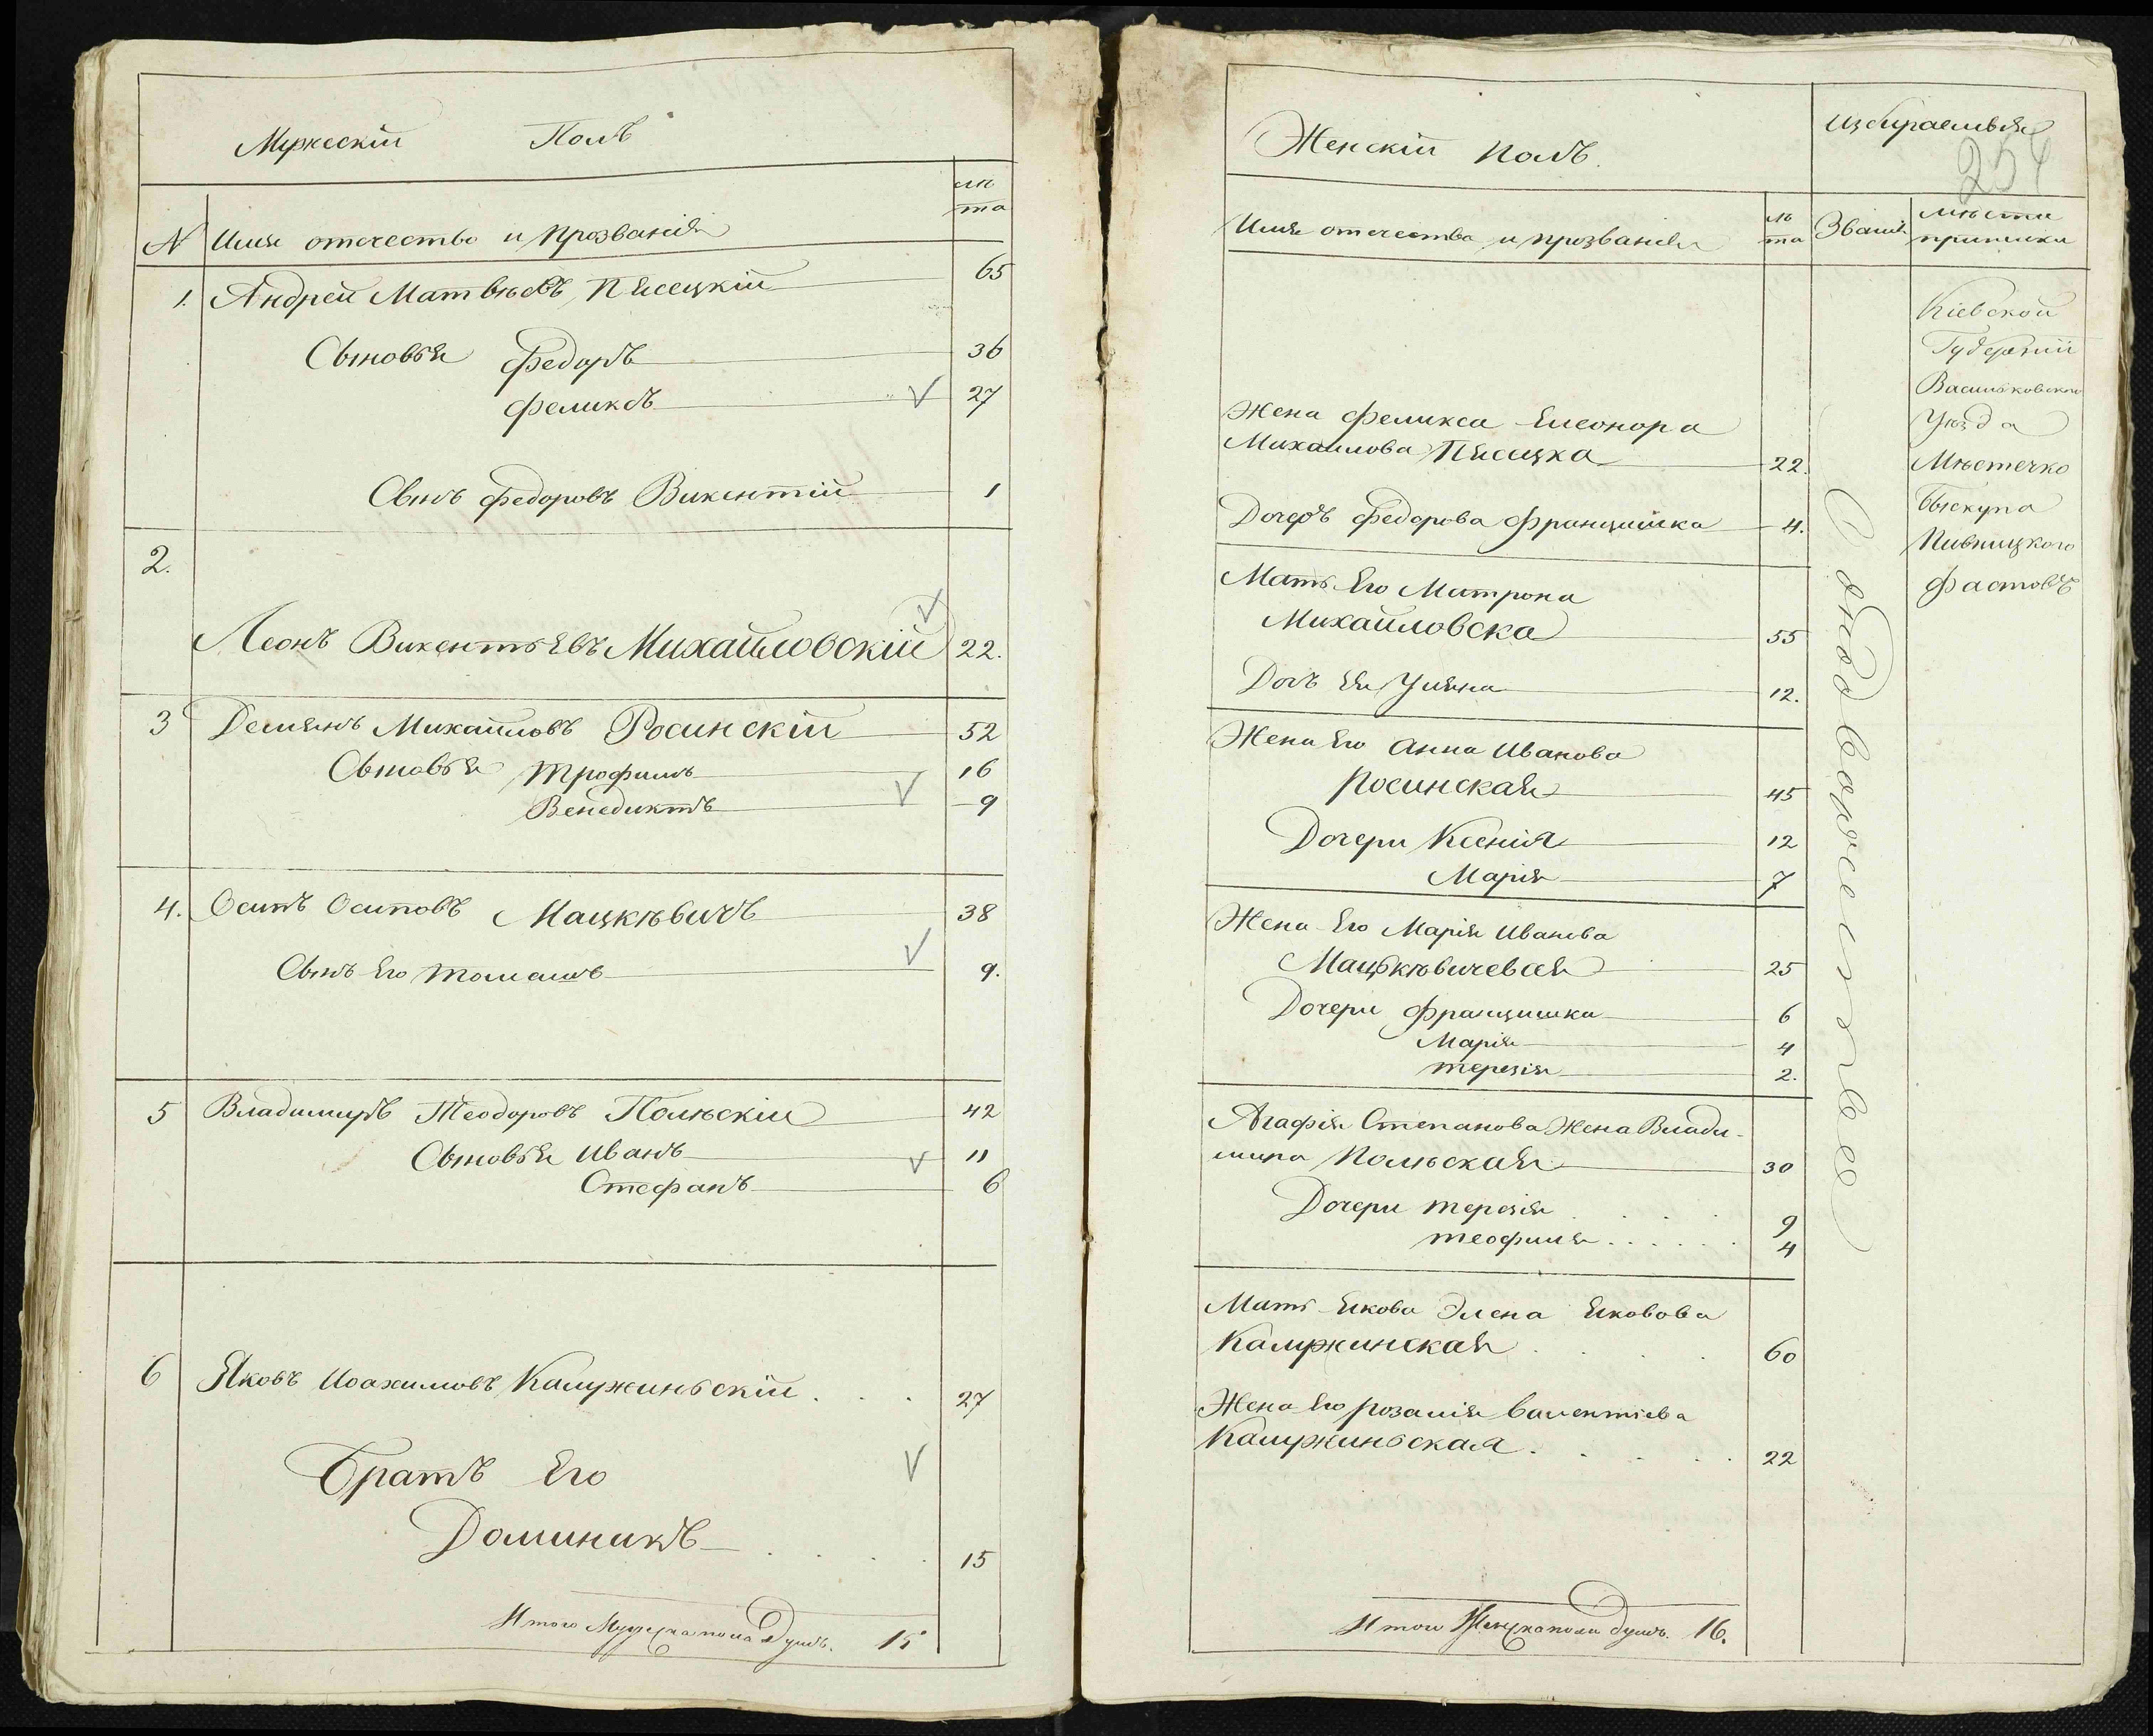 Мужескій Полъ
лѣ
та
N Имя отечество и прозванія
1. Андрей Матвѣевъ Пясецкій 65
Сыновья Федоръ 36
Феликсъ V 27
Сынъ Федоровъ Викентій 1
2.
Леонъ Викентьевъ Михайловскій V 22.
3 Демянъ Михайловъ Росинскій 52
Сыновья Трофимъ 16
Венедиктъ V 9
4. Осипъ Осиповъ Мацкѣвичъ 38
Сынъ Его Томашъ V 9.
5 Владимиръ Теодоровъ Польскій 42
Сыновья Иванъ V 11
Стефанъ 6
6 Яковъ Иоахимовъ Калужиньскій 27
Братъ Его V
Доминикъ 15
Итого Мужеска пола душъ. 15
Женскій Полъ.
Избираемыя
254
Имя отечества и прозванія
лѣ
та
Званія
мѣста
приписки
Жена Феликса Елеонора
Михайлова Пясецка 22.
Дочеръ Федорова Францишка 4.
Мать Его Матрона
Михайловска 55
Дочъ Ея Уляна 12.
Жена Его Анна Иванова
Росинская 45
Дочери Ксенія 12
Марія 7
Жена Его Марія Иванова
Мацькѣвичевая 25
Дочери Францишка 6
Марія 4
Терезія 2.
Агафія Степанова Жена Влади-
мира Польская 30
Дочери Терезія 9
Теофиля 4
Мать Якова Элена Яковова
Калужинская 60
Жена Его Розалія Валентіева
Калужиньская 22
Итого Женска пола душъ. 16.
Однодворческое
Кіевской
Губерніи
Васильковского
Уѣзда
Мѣстечко
Быскупа
Пивницкого
Фастовъ